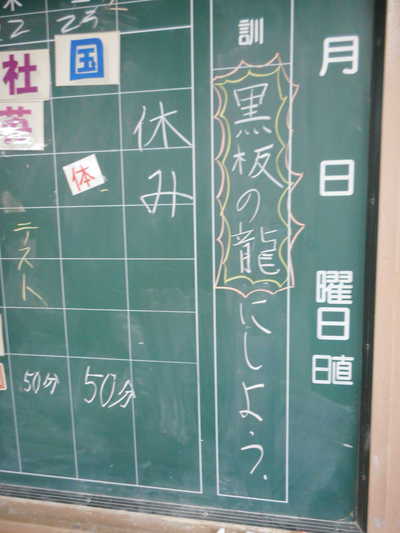 月日曜日
日直
訓
黒板の龍にしよう。
休み
国
体
50分
23
社
テスト
50分